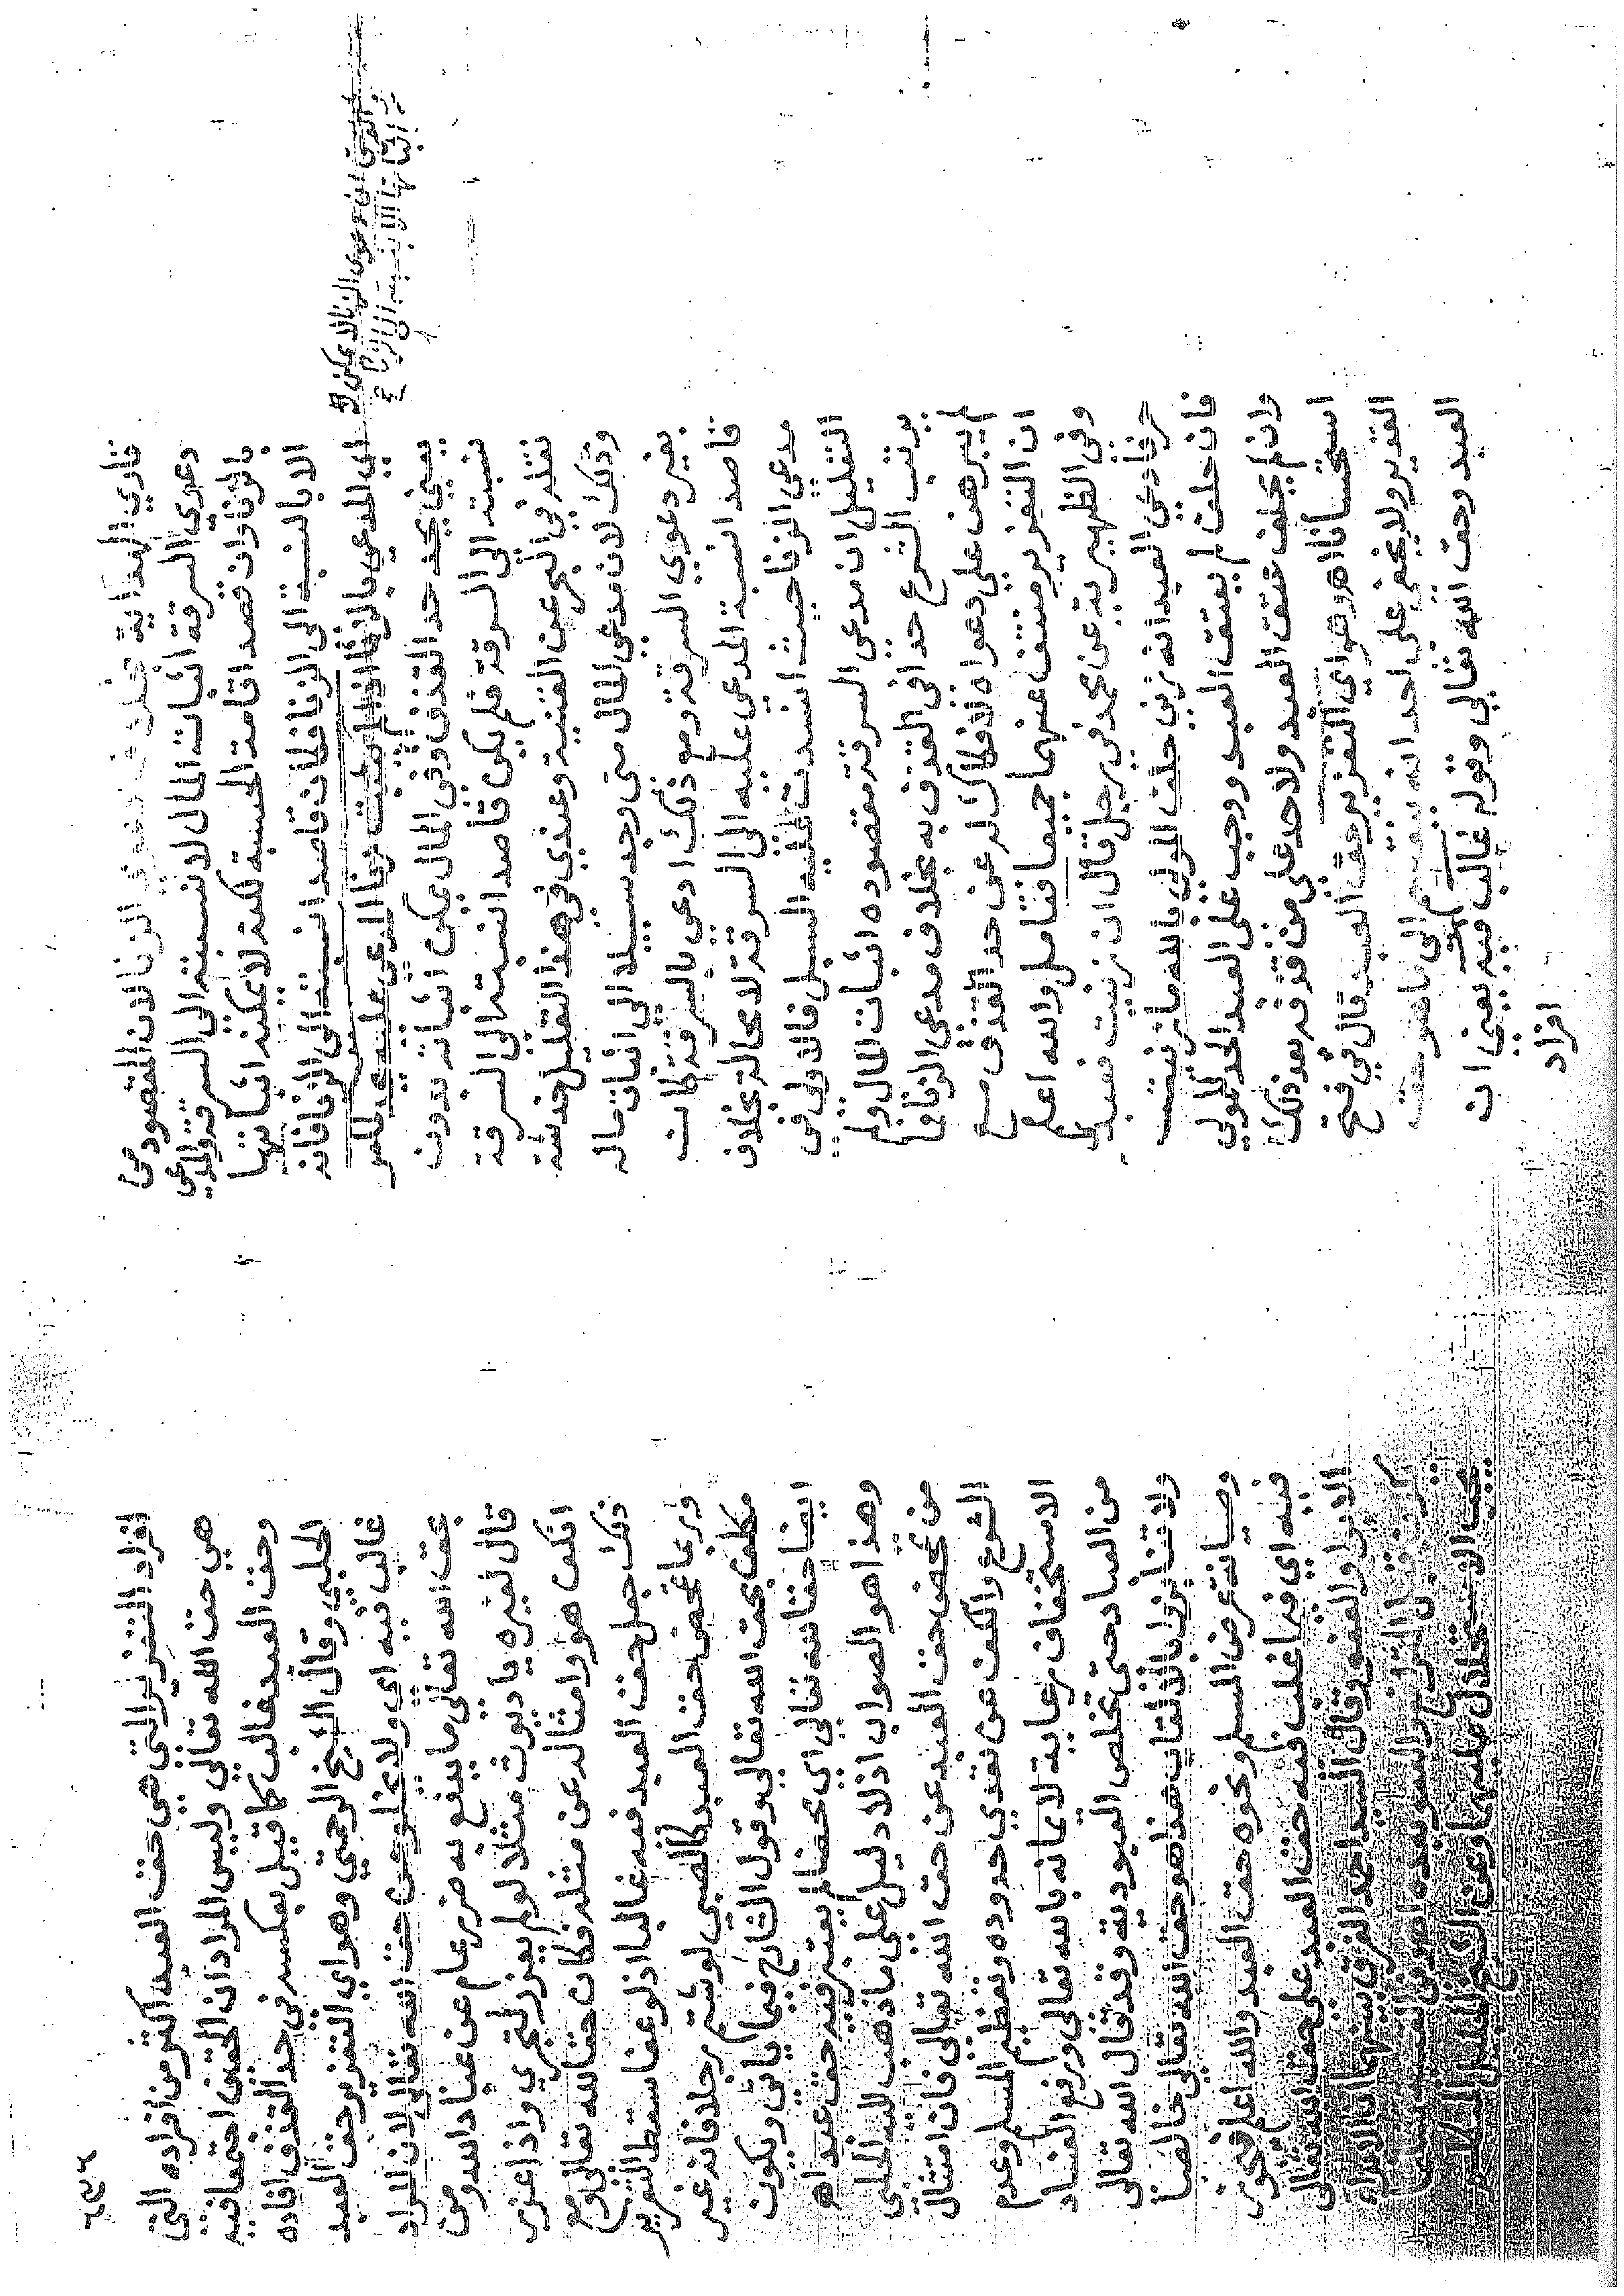 قاري الهداية بخلاف دعوي الزنا لان المقصود من
دعوي السرقة اثبات المال لا نسبته الي السرقة والمدعي
بالزنا وان قصد اقامة الحسبة لكنه لا يمكنه اثباتها
الا بالنسبة الى الزنا فكان قاصدا نسبته الى الزنا فانه
اي المدعي بالزنا اذا لم يثبت زنا المدعى عليه يحد للقذف
والفرق ان دعوى الزنا لا يمكن
اثباتها الا بنسبته الى الزنا
يعني يحد حد القذف وفي المال يمكن اثباته بدون
نسبته الى السرقة فلم يكن قاصدا نسبته الى السرقة
نقله في البحر عن القنية وعندي في هذا التعليل خدشة
وذلك لان مدعي المال متى وجد سبيلا الى اثبات ماله
بغير دعوي السرقة ومع ذلك ادعي بالسرقة كان
قاصدا نسبة المدعى عليه الى السرقة لا محالة بخلاف
مدعي الزنا حيث انسدت عليه السبل فالاولى في
التعليل ان مدعى السرقة مقصوده اثبات المال ولم
يرتب الشرع حدا في القذف به بخلاف مدعى الزنا فا
لم يبرهن علي دعواه اذ ذاك له عن حد القذف مع
ان التعزير منتف عنهما جميعا فتامل والله اعلم
وفي الظهيرية عن محمد في رجل قال ان زنيت فعبدي
حر فادعي العبد انه زني حلف المولي بالله ما زنيت
فان حلف لم يعتق العبد ووجب على العبد الحد للمولي
وان لم يحلف عتق العبد ولا حد على من قذفه بعد ذلك
استحسانا اه وهو اي التعزير حق العبد قال في فتح
القدير ولا يخفى على احد انه ينقسم الى ما هو حق
العبد وحق الله تعالي وقوله غالب فيه يعني ان
افراد
٦٩٦
افراد التعزير التي هي حق العبد اكثر من افراده التي
هي حق الله تعالي وليس المراد ان الحقين اجتمعا فيه
وحق العبد غالب كما قيل بعكسه في حد القذف افاده
الحلبي وقال الشيخ الرحمتي وهو اي التعزير حق العبد
غالب فيه اي ولا يخلو عن حق الله تعالى لان المراد
بحق الله تعالى ما يدفع به ضرر عام عن عباد الله ومن
قال لغيره يا ديوث مثلا لو لم يعزر لتجري واذا عزر
انكف هو وامثاله عن مثله فكان حقا لله تعالى ومع
ذلك جعل حق العبد فيه غالبا اذ لو عفا سقط التعزير
وربما تمحض حق العبد كالصبي لو شتم رجلا فانه غير
مكلف بحق الله تعالي وقول الشارح فيما ياتي ويكون
ايضا حقا لله تعالي اي محضا لم يعتبر فيه حق عبد اه
وهذا هو الصواب اذ لا دليل على ما ذهب اليه الحلبي
من تمحض حق العبد عن حق الله تعالى فان امتثال
الشرع والكف عن تعدي حدوده وتعظيم المسلم وعدم
الاستخفاف رعاية لايمانه بالله تعالى ورفع الفساد
من العباد حتى تخلص العبودية وقد قال الله تعالى
ولا تنابزوا بالالقاب هذا هو حق الله تعالي خالصا
وصيانة عرض المسلم ونحوه حق العبد والله اعلم فيجوز
فيه اي فيما غلب فيه حق العبد على حق الله تعالى
الابرا والعفو وقال السيد احمد الفرق بينهما ان الابراء
يكون قبل الترافع والعفو بعده اه وفي القنية تشاتما
يجب الاستحلال عليهما وعن الشيخ الجليل